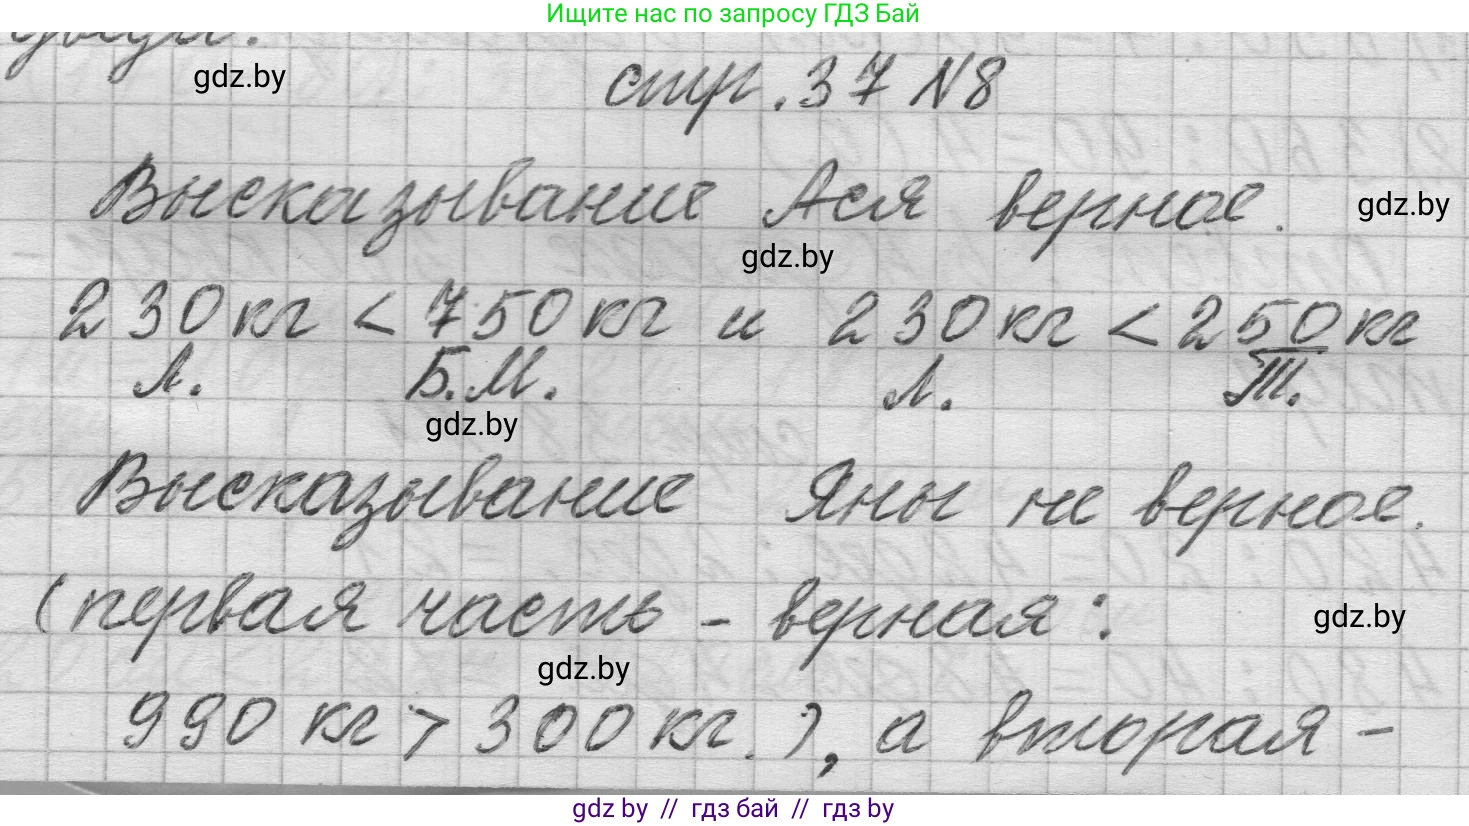 Ищите нас по запросу ГДЗ Бай
gdz.by
стр. 37 N8
Высказывание Ася верное.
gdz.by
gdz.by
230 кг < 750 кг и 230 кг < 250 кг
Л. Б.М. Л. Т.
gdz.by
Высказывание Яны не верное.
(первая часть - верная:
gdz.by
gdz.by
990 кг > 300 кг.), а вторая -
gdz by // гдз бай // гдз by